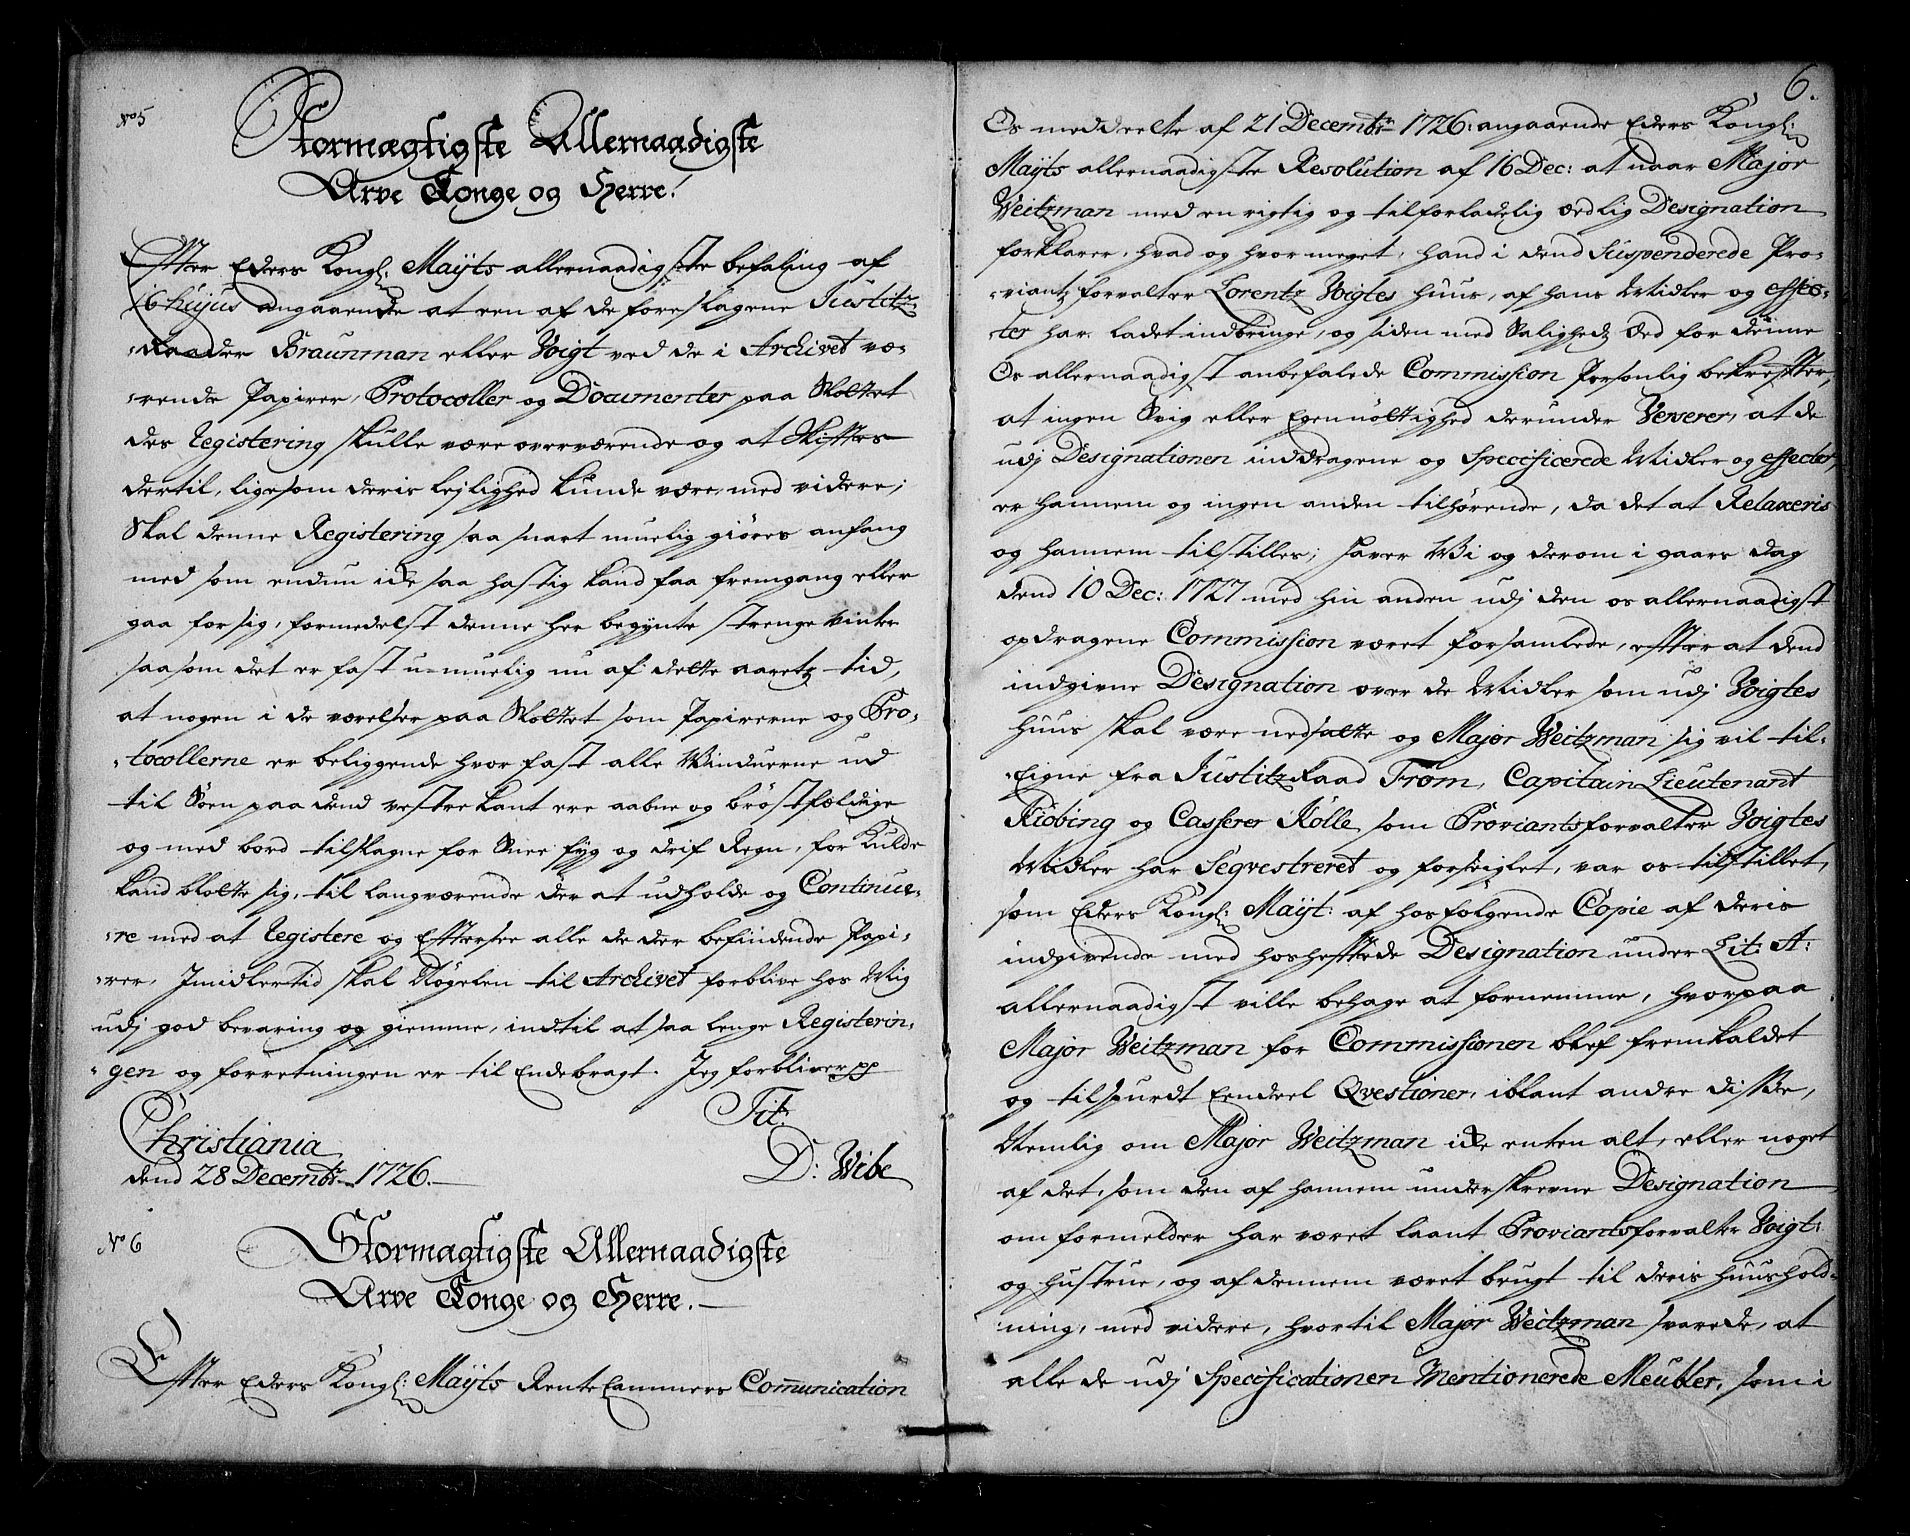 No 5
Stormægtigste Allernaadigste
Arve Konge og Herre!
Efter Eders Kongl: Mayts allernaadigste befaling af
16 hujus angaaende at een af de foreslagene Justitz-
-Raader Braunman eller Voigt ved de i Archivet væ-
-rende Papirer, Protocoller og Documenter paa Slottet
des Registering skulle være overværende og at skiftes
dertil, ligesom deris lejlighed kunde være, med videre;
Skal denne Registering saa snart muelig giøres anfang
med som endnu icke saa hastig kand faa fremgang eller
gaa for sig, formedelst denne her begynte strenge vinter
saasom det er fast u-muelig nu af dette aaretz tid,
at nogen i de værelser paa Slottet som Papirerne og Pro-
-tocollerne er beliggende hvor fast alle Vinduerne ud
til Søen paa dend vestre kant ere aabne og brøstfældige
og med bord tilslagne for Snee fyg og drif Regn, for Kulde
kand blotte sig, til langværende der at udholde og Continue-
-re med at Registere og Eftersee alle de der befindende Papi-
-rer. Imidlertid skal Nøgelen til Archivet forblive hos Mig
udj god bevaring og giemme, indtil at saa lenge Registerin-
-gen og forretningen er til Endebragt. Jeg forbliver pp
Tit:
Christiania
dend 28 Decembr. 1726.
D: Wibe
No 6
Stormægtigste Allernaadigste
Arve Konge og Herre.
Efter Eders Kongl: Mayts RenteCammers Communication
6.
Os meddeelte af 21 Decembr 1726: angaaende Eders Kongl:
Mayts allernaadigste Resolution af 16 Dec: at naar Major
Weitzman med en rigtig og tilforladelig Ædlig Designation
forklarer, hvad og hvor meget, hand i dend Suspenderede Pro-
-viantz forvalter Lorentz Voigtes huus, af hans Midler og effec-
-ter har ladet indbringe, og siden med Salighedz Æd for denne
Os allernaadigst anbefalede Commission Personlig bekrefter,
at ingen Svig eller Egennøttighed derunder Verserer, at de
udj Designationen inddragene og Specificerede Midler og effecter,
er hannem og ingen anden tilhørende, da det at Relaxeris
og hannem tilstilles; haver Vi og derom i gaars dag
dend 10 Dec: 1727 med hin anden udj den os allernaadigst
opdragene Commission været forsamlede, efter at dend
indgivne Designation over de Midler som udj Voigtes
huus skal være nedsatte og Major Weitzman sig vil til-
-Eigne fra JustitzRaad From, Capitain Lieutenant
Kiøbing og Casserer Rølle, som Proviantsforvalter Voigtes
Midler har Seqvestreret og forseiglet, var os tilstillet,
som Eders Kongl: Mayt: af hosfølgende Copie af deris
indgivende med hosheftede Designation under Lit: A:
allernaadigst ville behage at fornemme, hvorpaa
Major Weitzman for Commissionen blef fremkaldet
og tilspurdt Eendeel Qvestioner, iblant andre disse,
Nemlig om Major Weitzman icke enten alt, eller noget
af det, som den af hannem underskrevne Designation
om formelder har været laant Proviantsforvalter Voigt:
og hustrue, og af dennem været brugt til deris huushold-
ning, med videre, hvortil Major Weitzman svarede, at
alle de udj Specificationen Mentionerede Meubler, som i